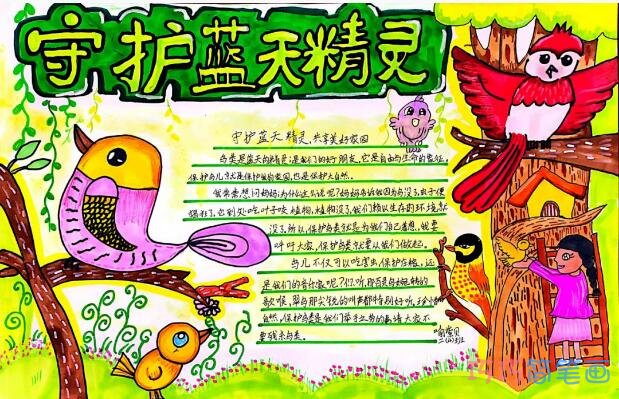 守护蓝天精灵
守护蓝天精灵,共享美好家园
鸟类是蓝天的精灵,是我们的好朋友,它是自由与生命的象征,
保护鸟儿就是保护我们的家园,也是保护大自然。
我常常想问妈妈,为什么这么说呢?妈妈告诉我因为鸟没了,虫子便
猖狂了,它到处吃叶子咬植物,植物没了,我们赖以生存的环境就
没了,所以,保护鸟类就是为我们自己着想。我要
呼吁大家,保护鸟类就要从我们做起。
鸟儿不仅可以吃害虫,保护庄稼,还
是我们的音乐家呢?你听,那百灵鸟婉转的
歌喉,翠鸟那尖锐的叫声都特别好听,
自然,保护鸟类是我们举手之劳的事,请大家不
要残杀鸟类。
二(四)班
简笔画